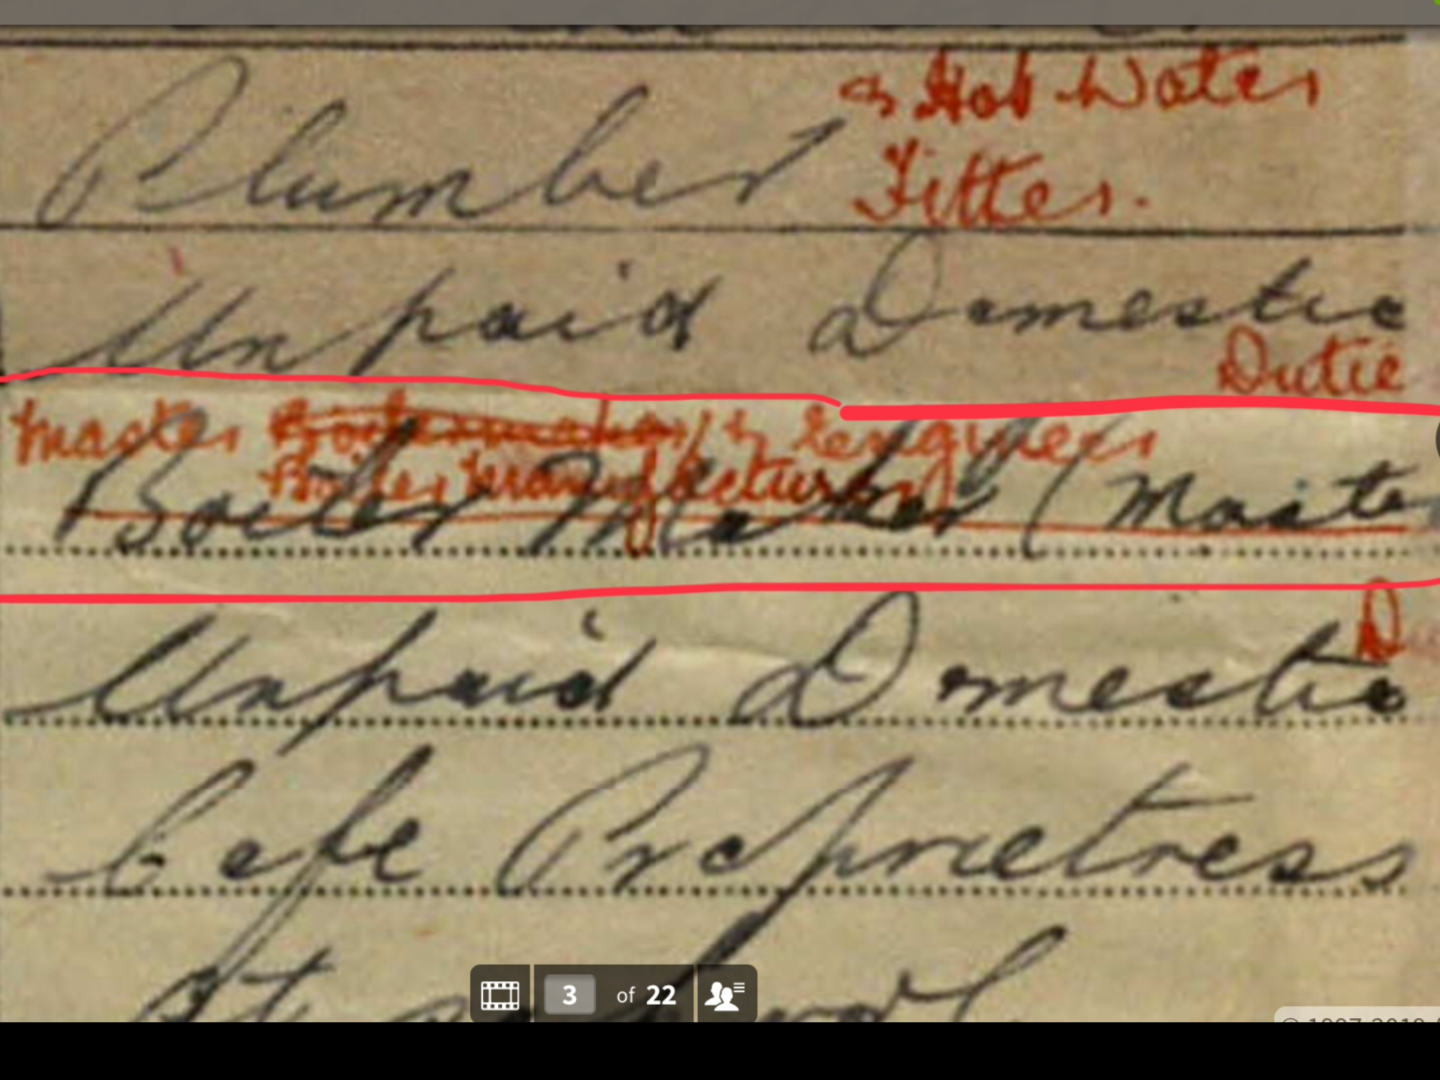 Plumber & Hot Water
Fitter.
Unpaid Domestic
Dutie
Master Boilermaker / & Engineers
Boiler Manufacturer
Boiler Maker (Maste
Unpaid Domestic D
Cafe Proprietress
At School
3 of 22